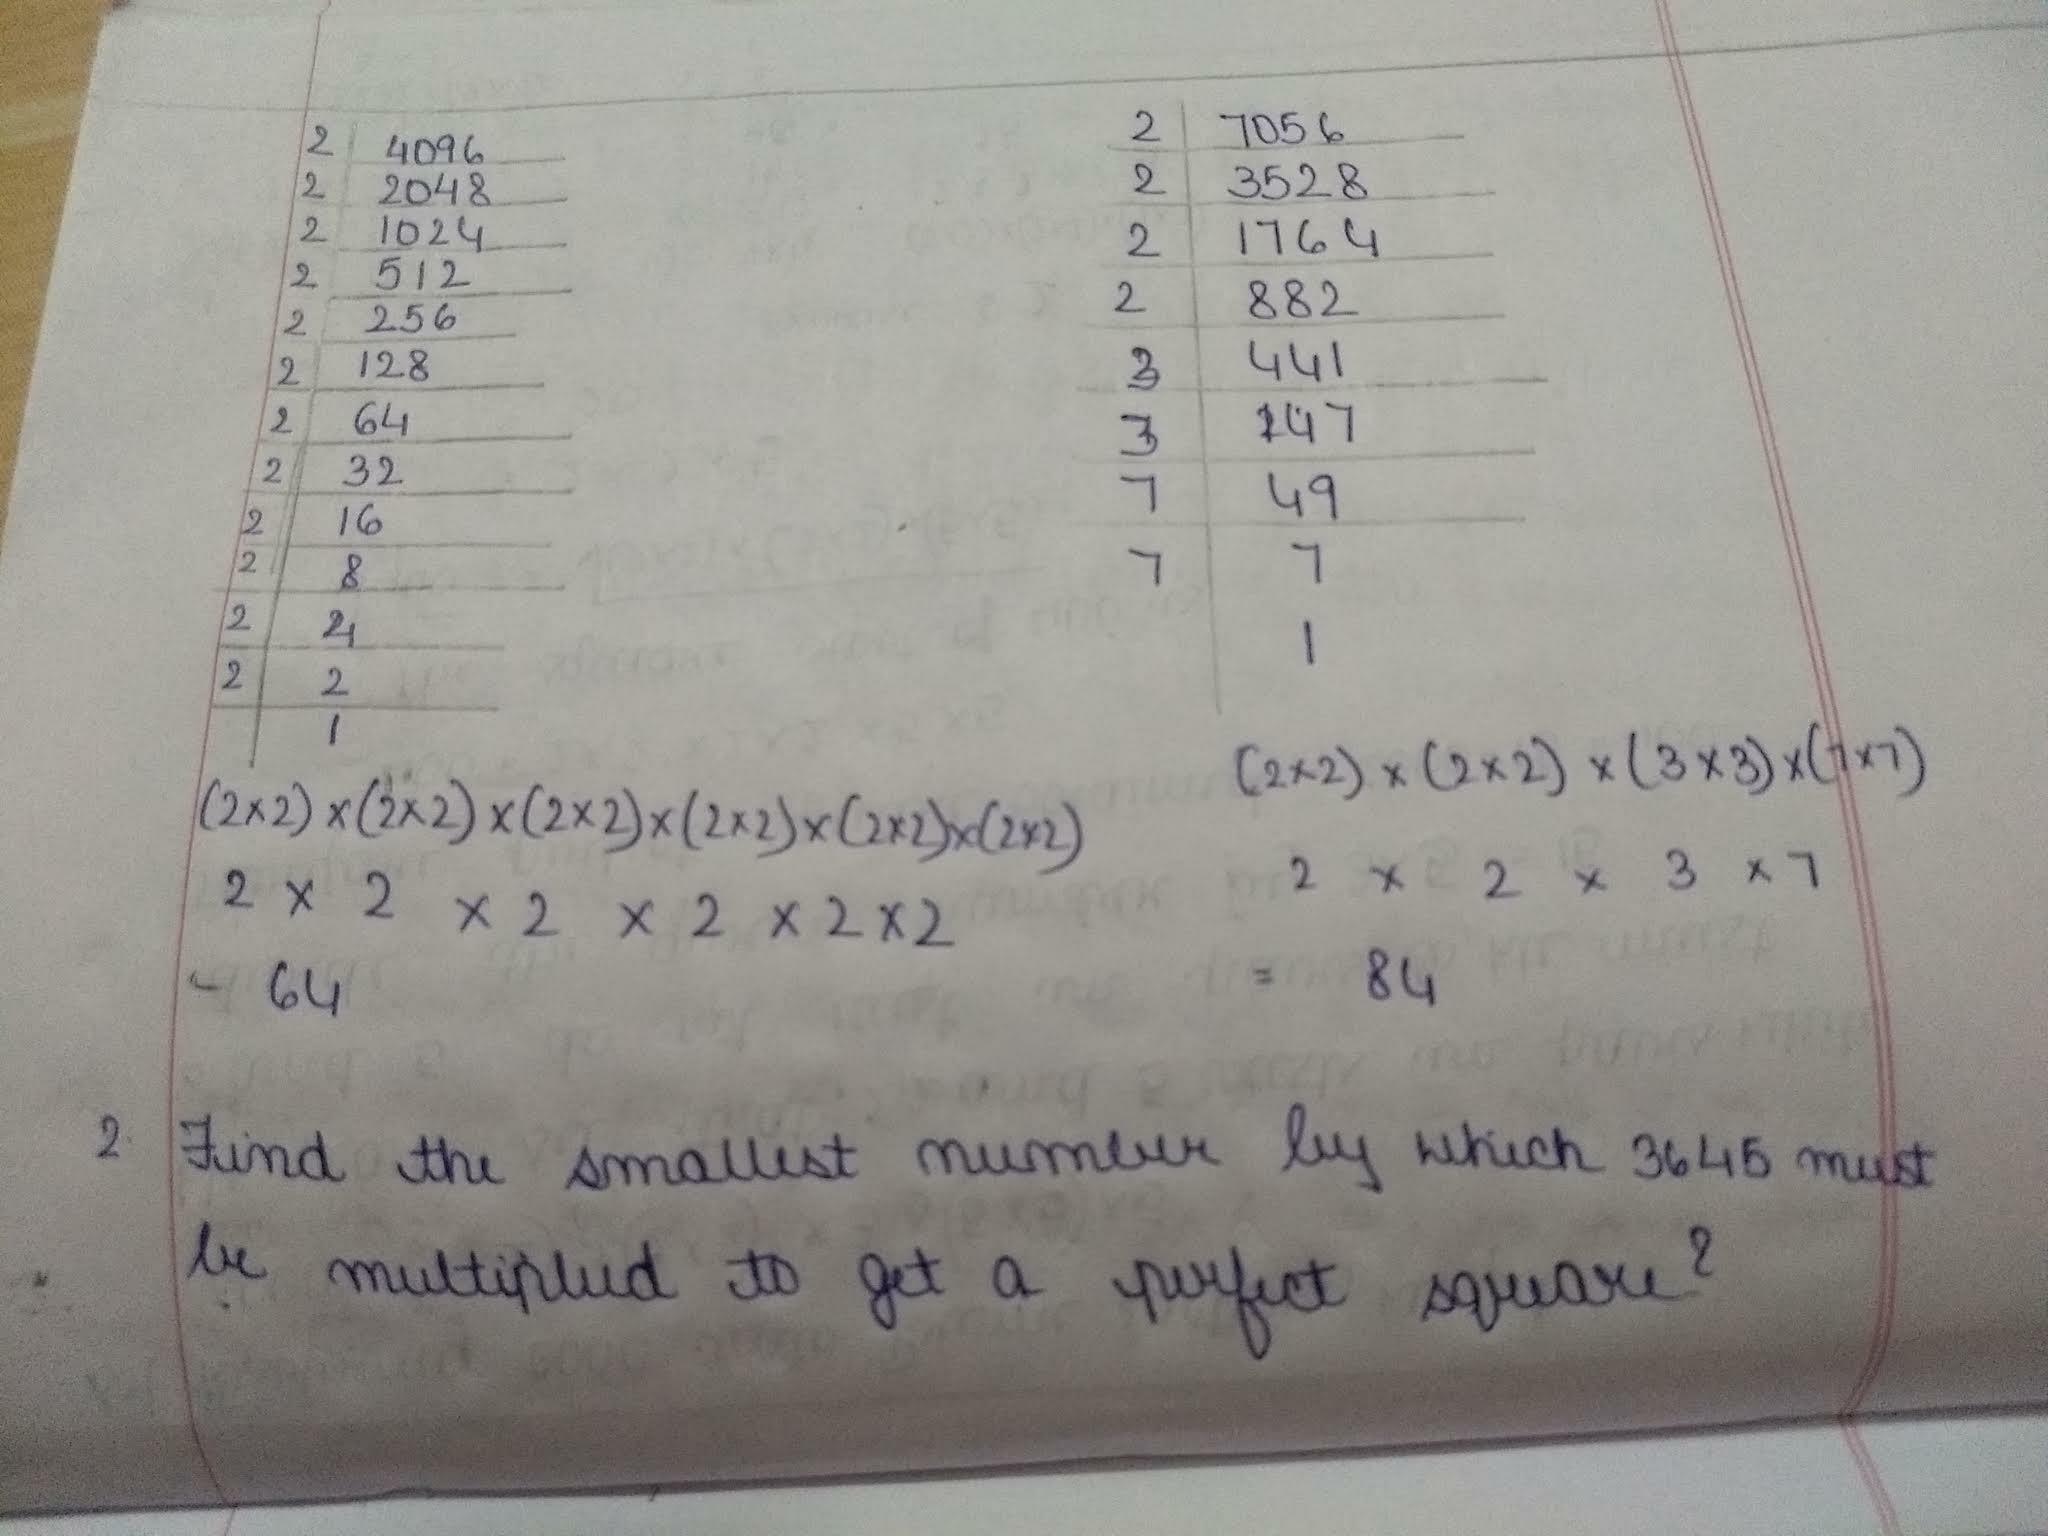 2 4096
2 2048
2 1024
2 512
2 256
2 128
2 64
2 32
2 16
2 8
2 4
2 2
1
(2×2)×(2×2)×(2×2)×(2×2)×(2×2)×(2×2)
2 × 2 × 2 × 2 × 2 × 2
- 64
2 7056
2 3528
2 1764
2 882
3 441
3 147
7 49
7 7
1
(2×2)×(2×2)×(3×3)×(7×7)
2 × 2 × 3 × 7
= 84
2. Find the smallest number by which 3645 must
be multiplied to get a perfect square?